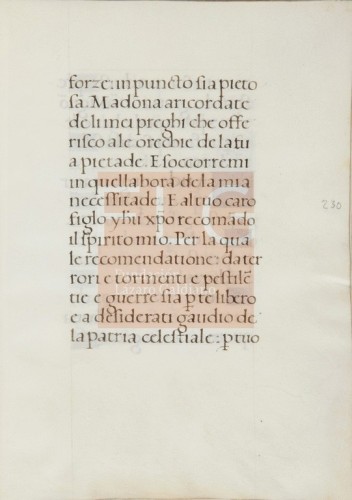 forze: in puncto sia pieto
sa. Madona aricordate
de li mei preghi che offe
risco a le orechie de la tu
a pietade. E soccorremi
in quella hora de la mia
necessitade. E al tuo caro
figlo yħu xp̄o recomādo
il spirito mio. Per la qua
le recomendatione: da ter
rori e tormenti e pestilē
tie e guerre sia p̱ te libero
e a desiderati gaudio de
la patria celestiale: p̱ tuo
230